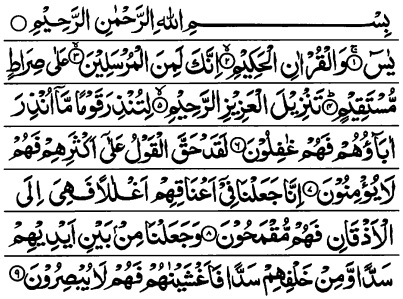 بِسْمِ اللهِ الرَّحْمٰنِ الرَّحِيْمِ ○
يٰسٓ ۝۱ وَالْقُرْاٰنِ الْحَكِيْمِ ۝۲ اِنَّكَ لَمِنَ الْمُرْسَلِيْنَ ۝۳ عَلٰى صِرَاطٍ
مُّسْتَقِيْمٍ ۝۴ تَنْزِيْلَ الْعَزِيْزِ الرَّحِيْمِ ۝۵ لِتُنْذِرَ قَوْمًا مَّاۤ اُنْذِرَ
اٰبَآؤُهُمْ فَهُمْ غٰفِلُوْنَ ۝۶ لَقَدْ حَقَّ الْقَوْلُ عَلٰٓى اَكْثَرِهِمْ فَهُمْ
لَا يُؤْمِنُوْنَ ۝۷ اِنَّا جَعَلْنَا فِيْٓ اَعْنَاقِهِمْ اَغْلٰلًا فَهِيَ اِلَى
الْاَذْقَانِ فَهُمْ مُّقْمَحُوْنَ ۝۸ وَجَعَلْنَا مِنْۢ بَيْنِ اَيْدِيْهِمْ
سَدًّا وَّمِنْ خَلْفِهِمْ سَدًّا فَاَغْشَيْنٰهُمْ فَهُمْ لَا يُبْصِرُوْنَ ۝۹